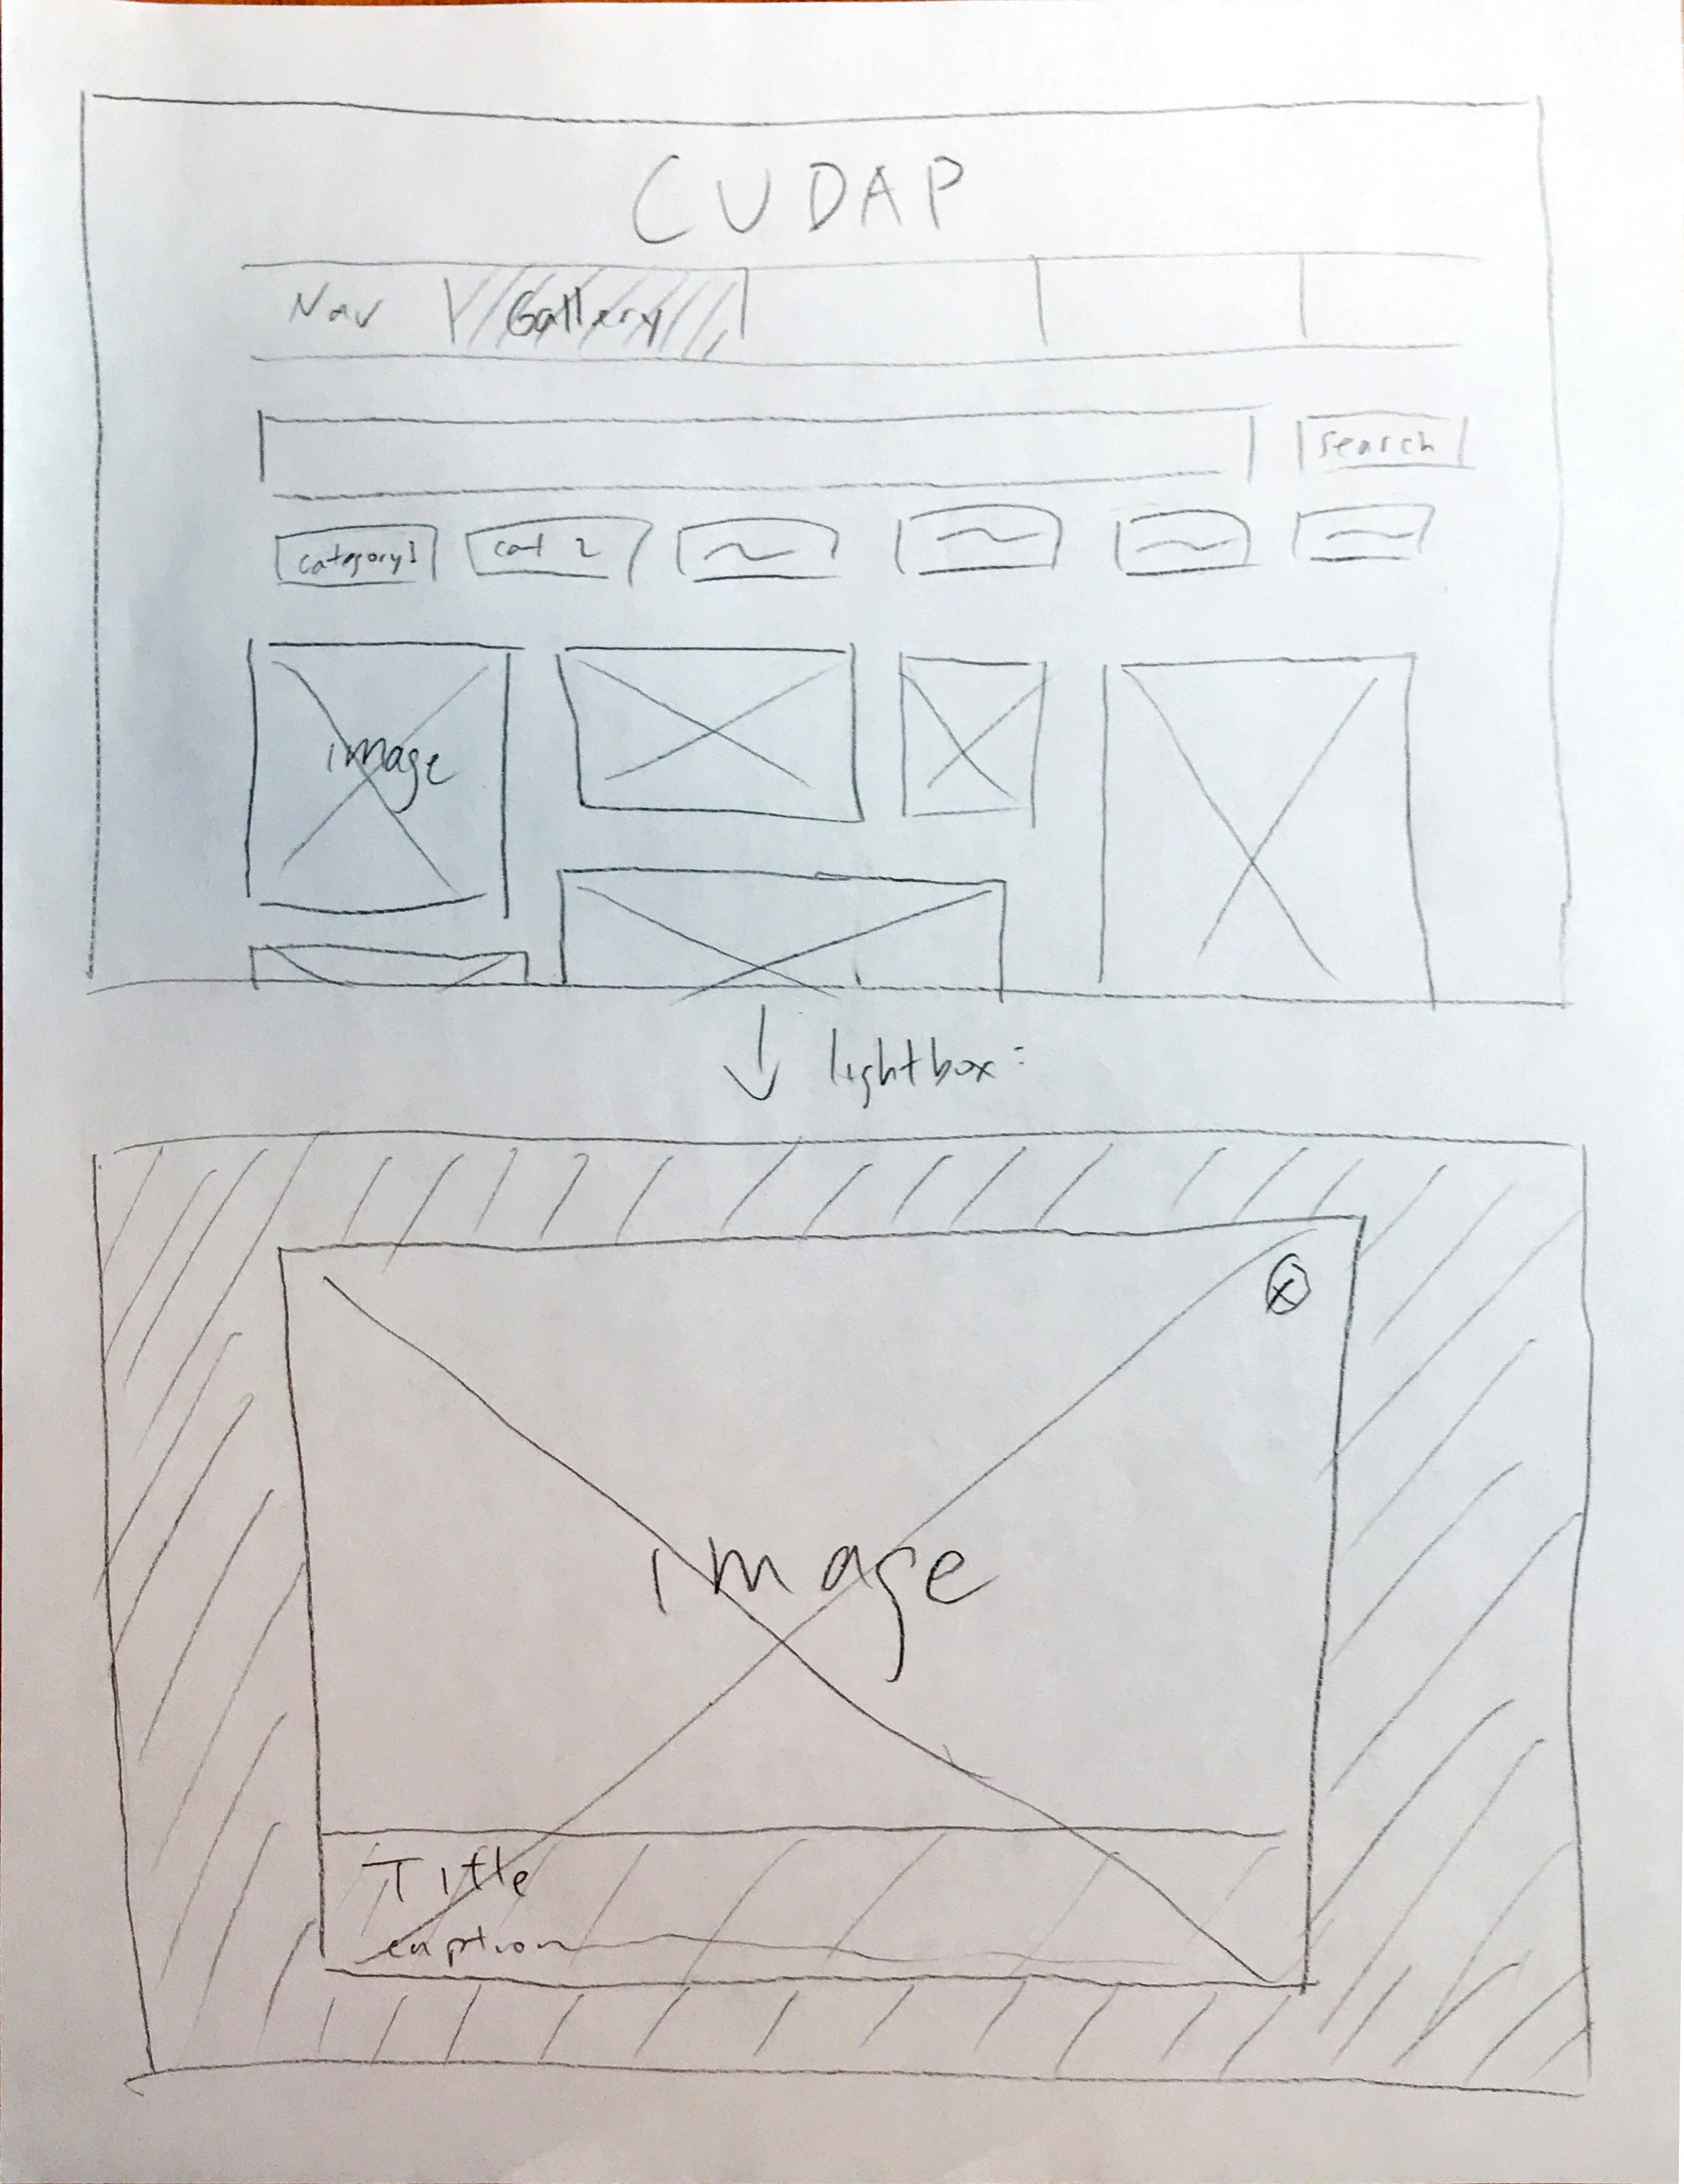 CUDAP
Nav Gallery
search
category1 cat 2
image
lightbox:
x
image
Title
caption